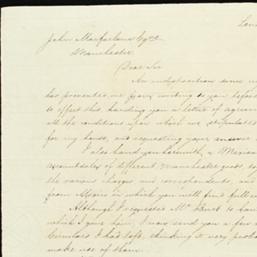 Lon
John Macfarlane Esqre
Manchester
Dear Sir
An indisposition since
has prevented me from writing to you before
to effect this handing you a letter of agree
all the conditions upon which we stipulated
for my hands, and requesting your answer
I also hand you herewith, a
assortments of different Manchester goods, to
the various charges and correspondents, and
from which you will find full
Although I requested Mr to han
which I gave him, I now send you a few
Circulars I had left, thinking it very proba
make use of them.